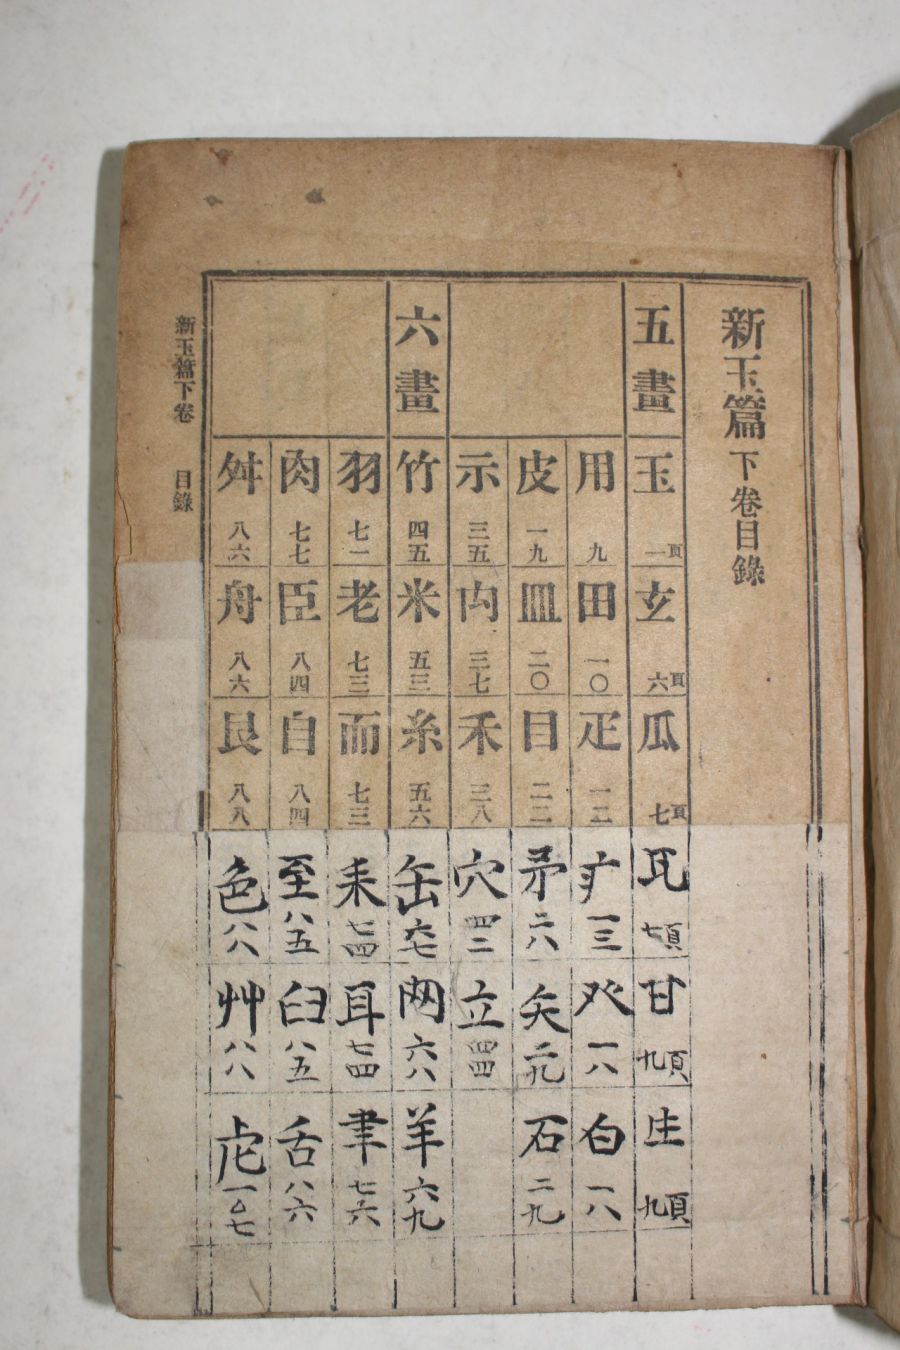 新玉篇 下卷目錄
五畫
玉 一頁
玄 六頁
瓜 七頁
瓦 七頁
甘 九頁
生 九頁
用 九
田 一〇
疋 一二
疒 一三
癶 一八
白 一八
皮 一九
皿 二〇
目 二二
矛 二八
矢 二九
石 二九
示 三五
禸 三七
禾 三八
穴 四二
立 四四
六畫
竹 四五
米 五三
糸 五六
缶 六七
网 六八
羊 六九
羽 七一
老 七三
而 七三
耒 七四
耳 七四
聿 七六
肉 七七
臣 八四
自 八四
至 八五
臼 八五
舌 八六
舛 八六
舟 八六
艮 八八
色 八八
艸 八八
虍 一〇七
新玉篇下卷 目錄